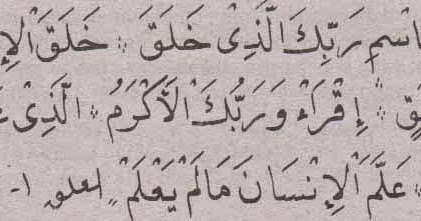 اسْمِ رَبِّكَ الَّذِىْ خَلَقَ ۞ خَلَقَ الْاِ
قٍ ۞ اِقْرَاْ وَرَبُّكَ الْاَكْرَمُ ۞ الَّذِىْ عَ
عَلَّمَ الْاِنْسَانَ مَا لَمْ يَعْلَمْ ۔ العلق ١-